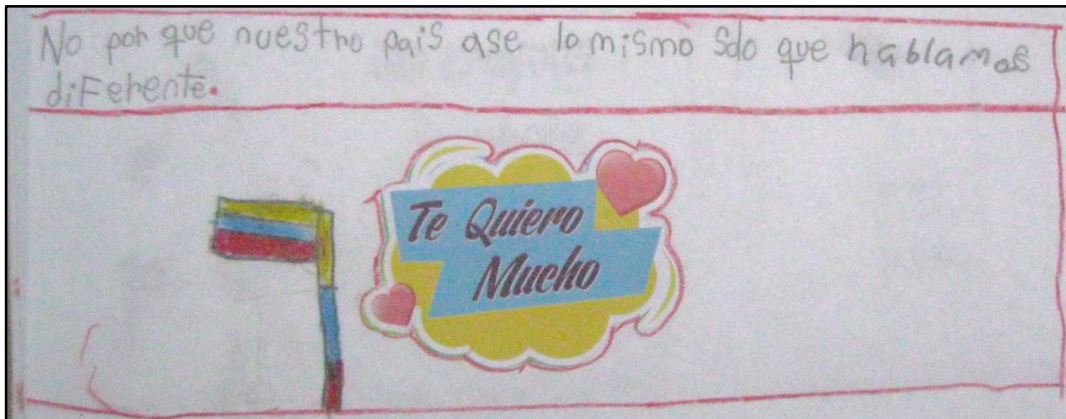 No por que nuestro pais ase lo mismo solo que hablamos
diferente.
Te Quiero
Mucho